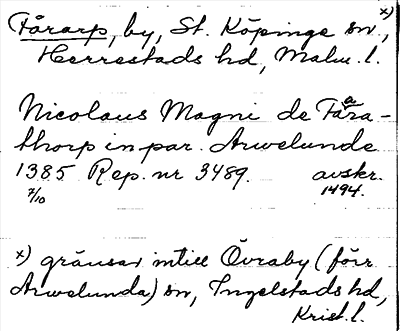 x)
Fårarp, by, St. Köpinge sn,
Herrestads hd, Malm. l.
Nicolaus Magni de Fåra-
thorp in par. Arwelunde
1385 Rep. nr 3489. avskr.
7/10 1494.
x) gränsar intill Övraby (förr
Arwelunda) sn, Ingelstads hd,
Krist. l.